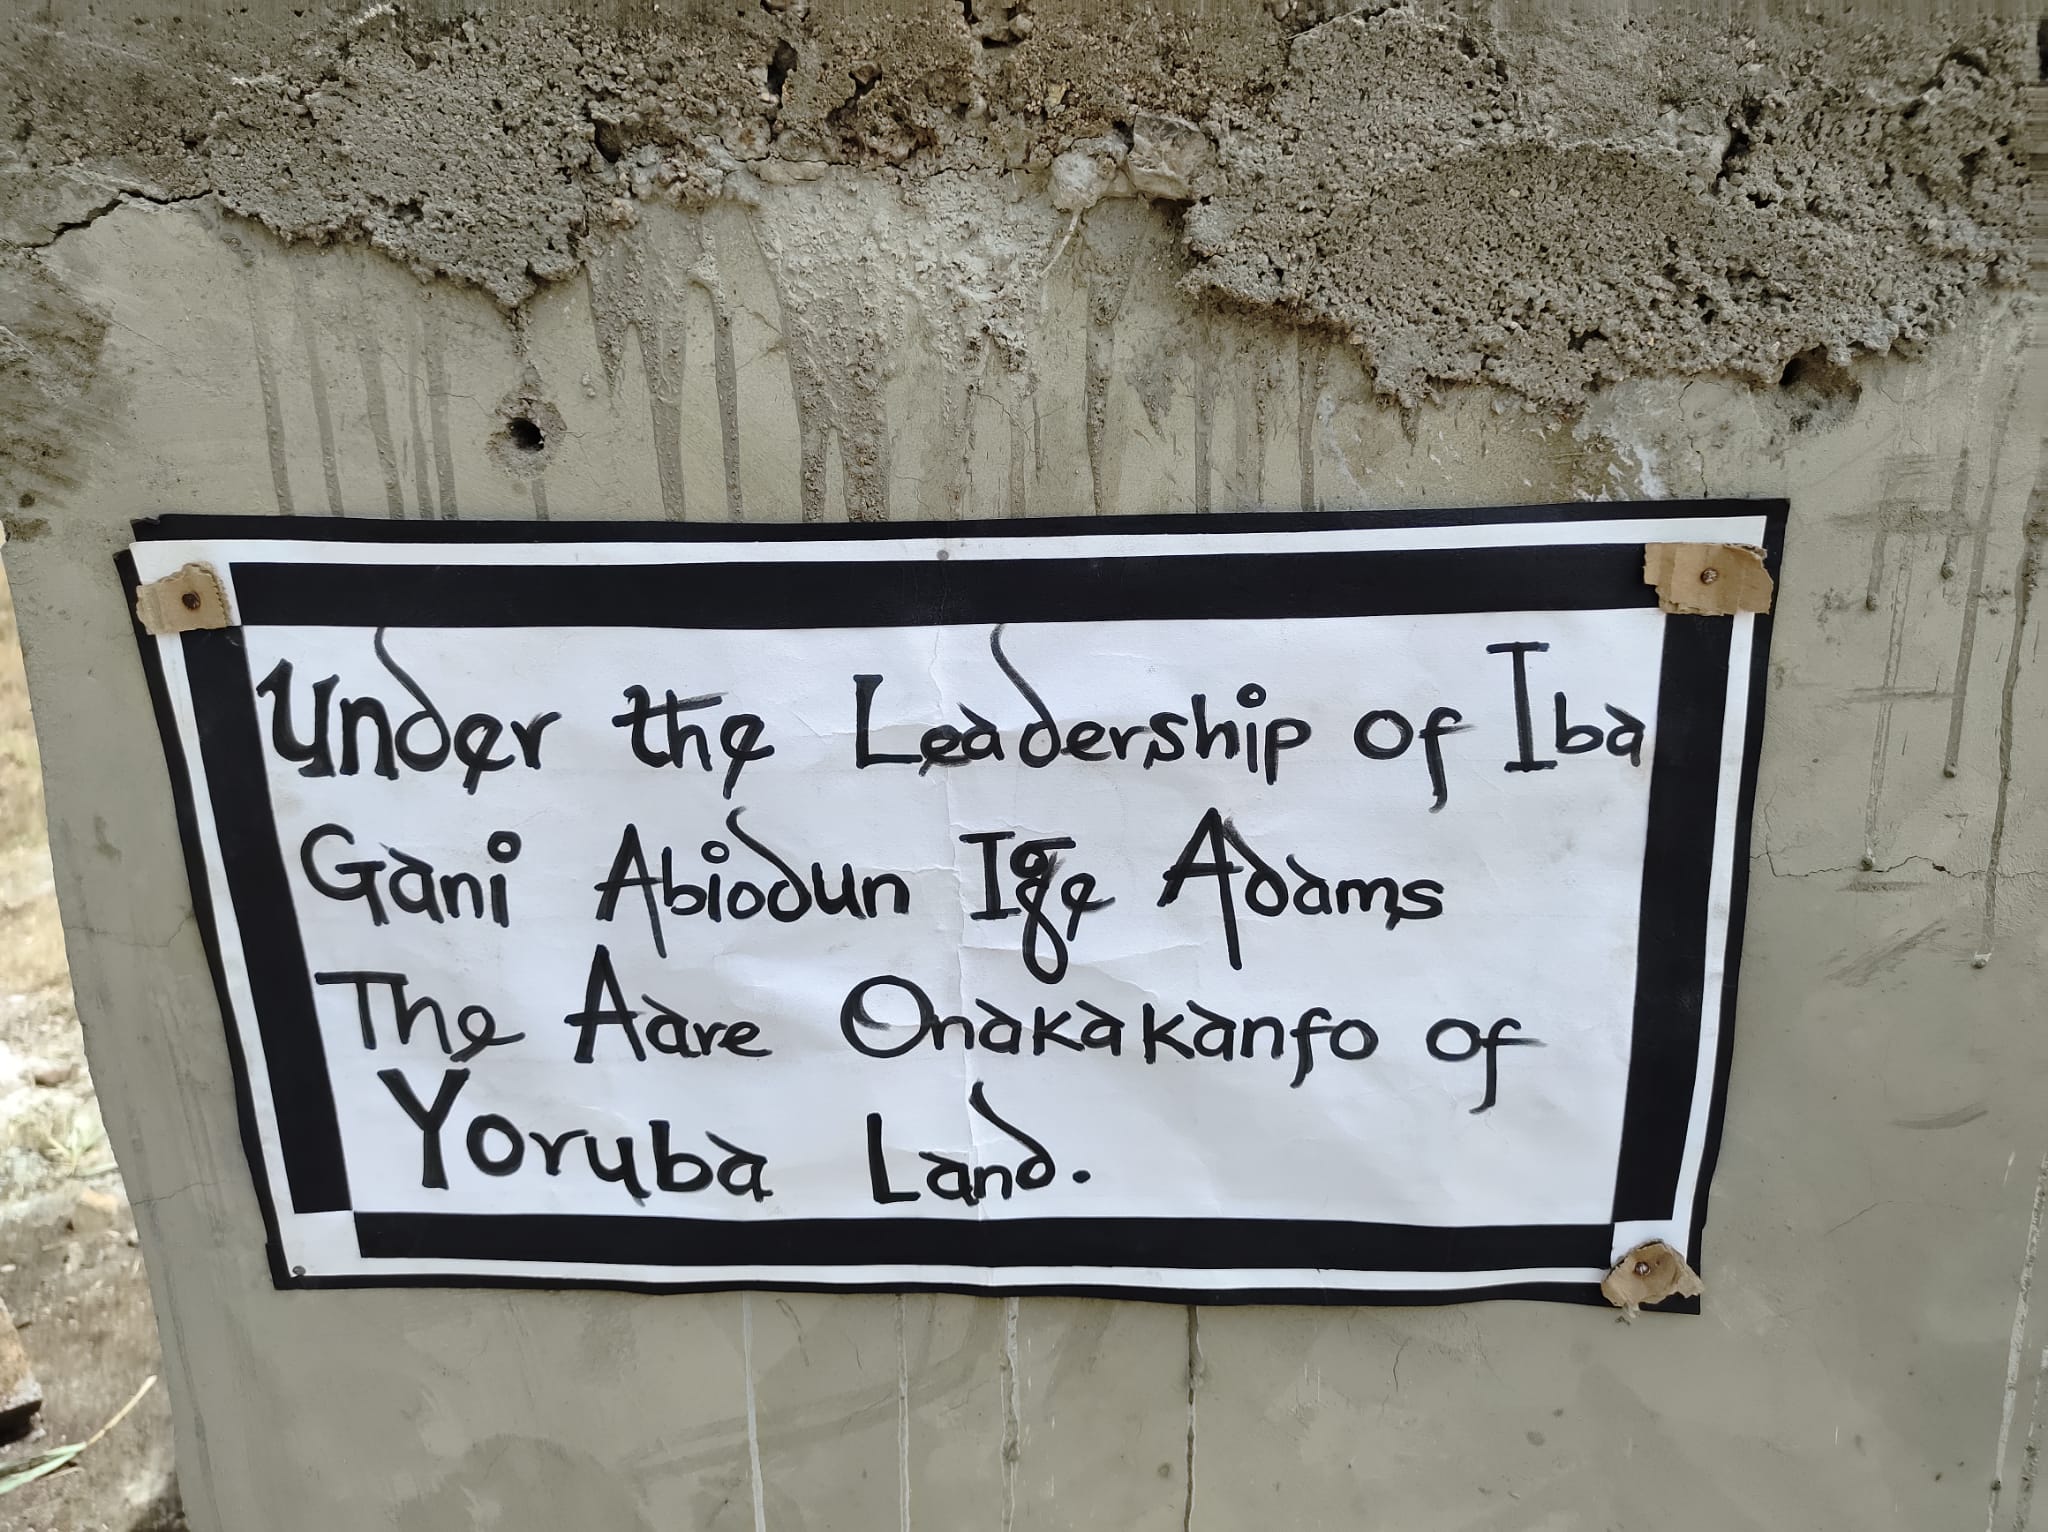 Under the Leadership of Iba
Gani Abiodun Ige Adams
The Aare Onakakanfo of
Yoruba Land.